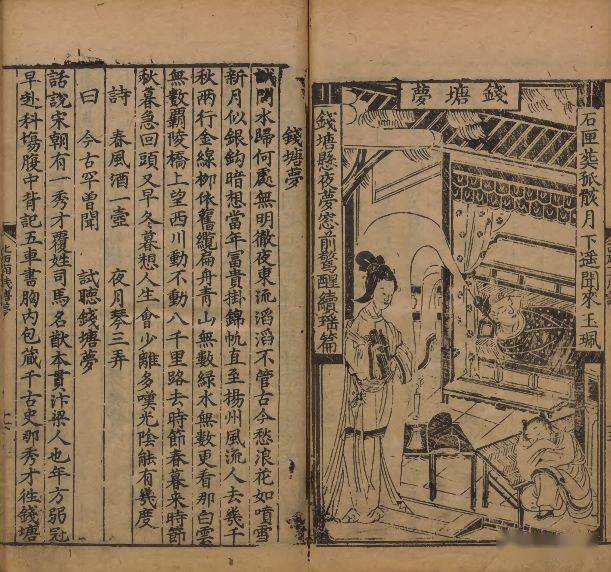 錢塘夢
石匣葬孤骸月下遙聞來玉珮
錢塘懸夜夢窓前驚醒續瑤篇
錢塘夢
試問水歸何處無明徹夜東流滔滔不管古今愁浪花如噴雪
新月似銀鈎暗想當年富貴掛錦帆直至揚州風流人去幾千
秋兩行金線柳依舊纜扁舟青山無數綠水無數更看那白雲
無數霸陵橋上望西川動不動八千里路去時節春暮來時節
秋暮急回頭又早冬暮想人生會少離多嘆光陰能有幾度
詩 春風酒一壺 夜月琴三弄
曰 今古罕曾聞 試聽錢塘夢
話說宋朝有一秀才覆姓司馬名猷本貫汴梁人也年方弱冠
早赴科塲腹中背記五車書胸內包藏千古史那秀才徃錢塘